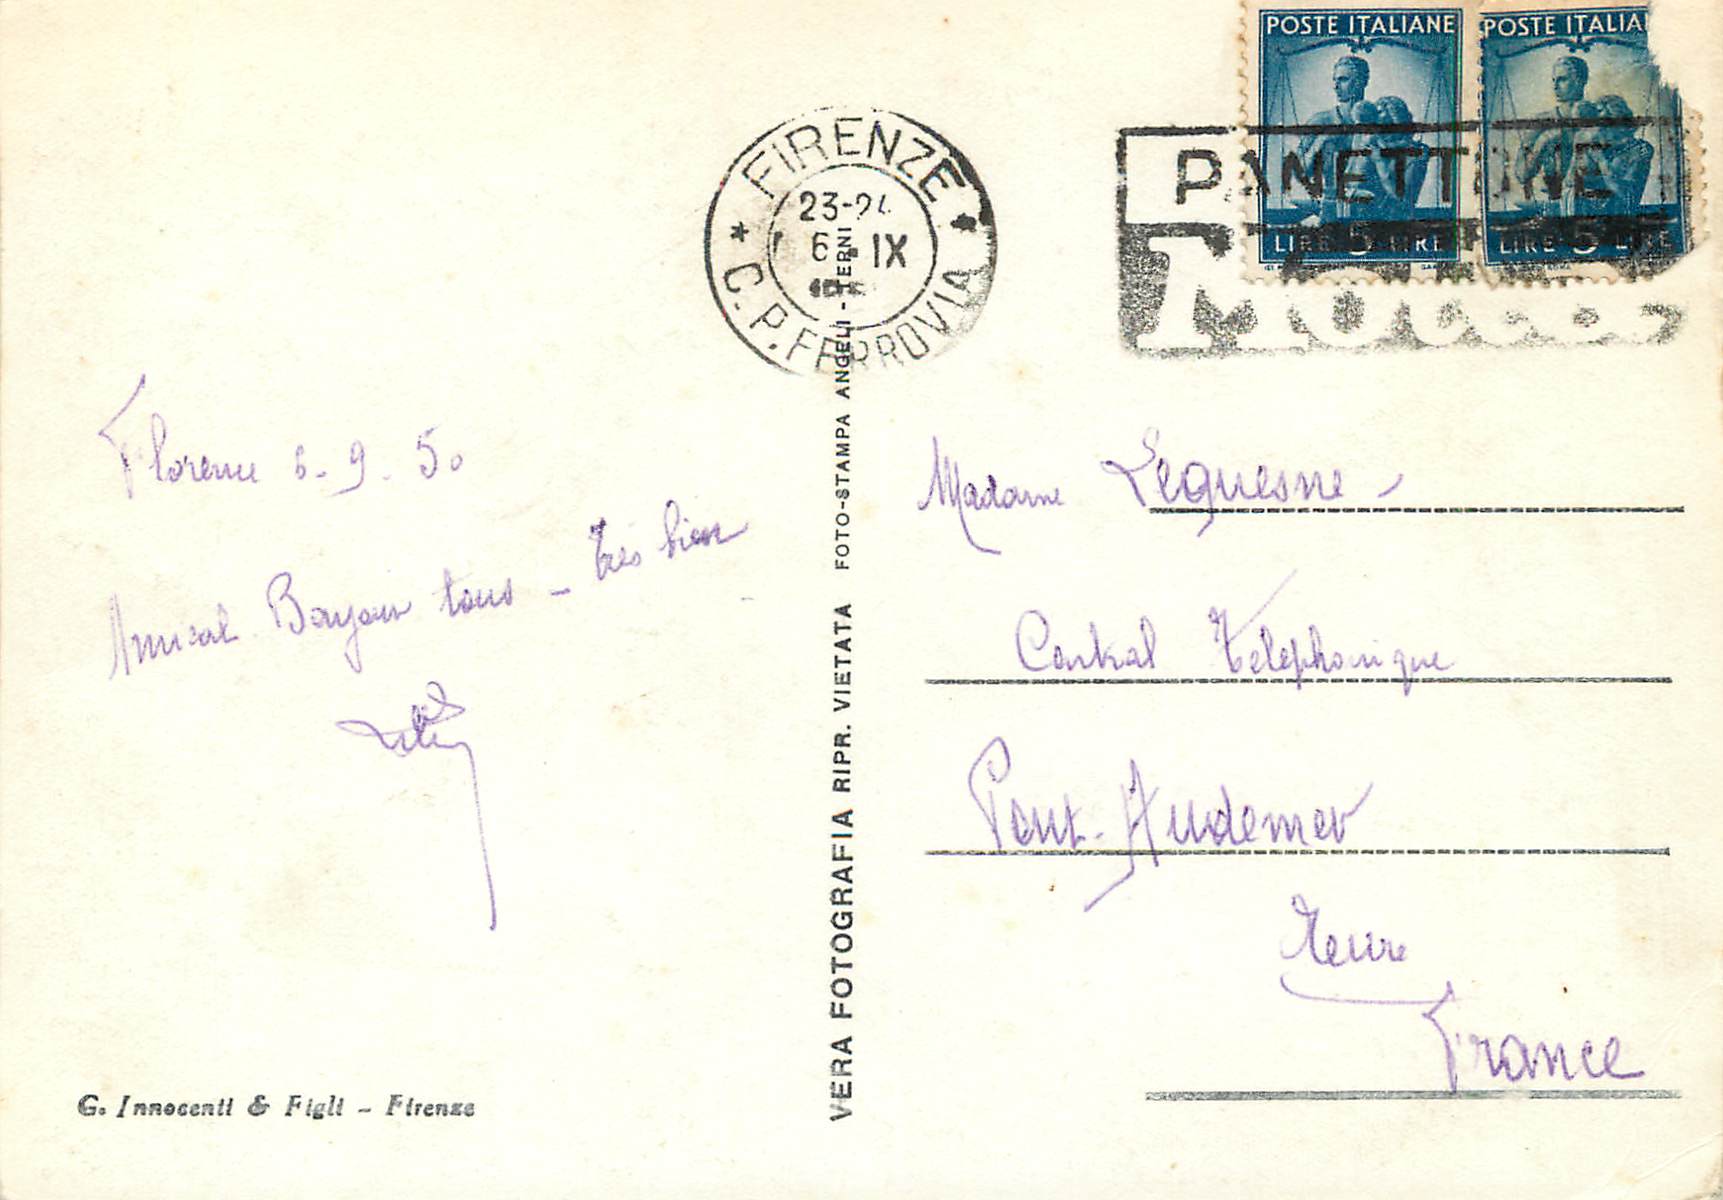 POSTE ITALIANE
POSTE ITALIA
LIRE 5 LIRE
LIRE 5 LIRE
FIRENZE
23-24
6 IX
C.P. FERROVIA
PANETTONE
Motta
Florence 6-9-50
Amical Bonjour tous - très bien
Madame Lequesne -
Central Téléphonique
Pont-Audemer
Eure
France
VERA FOTOGRAFIA RIPR. VIETATA FOTO-STAMPA ANGELI - TERNI
G. Innocenti & Figli - Firenze